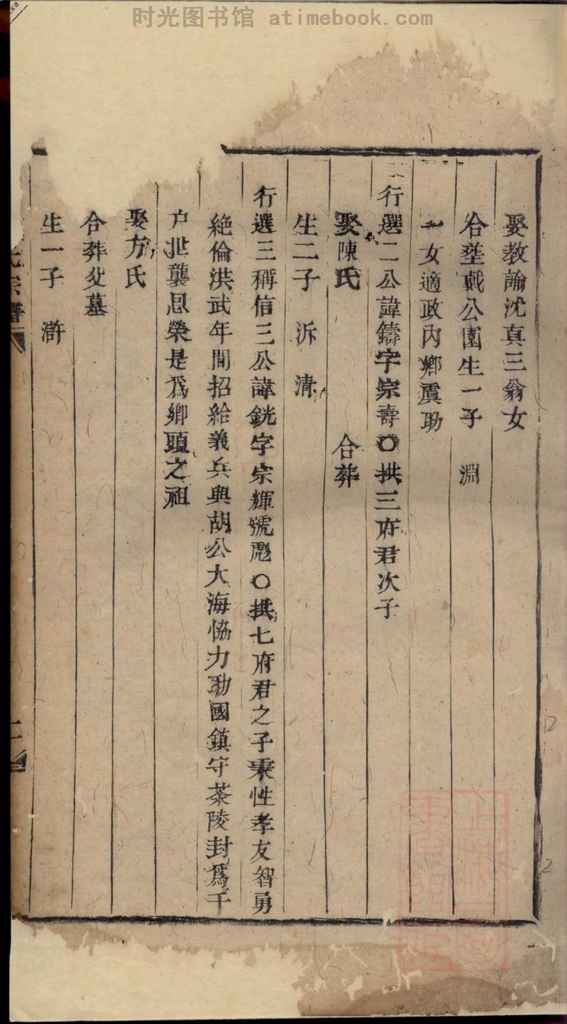 时光图书馆 atimebook.com
娶教諭沈真三翁女
合塟戴公園生一子 淵
一女適政內鄉虞助
行選二公諱鑄字宗壽○拱三府君次子
娶陳氏 合葬
生二子 泝 清
行選三稱信三公諱銧字宗輝號彪○拱七府君之子秉性孝友智勇
絶倫洪武年間招給義兵與胡公大海恊力勷國鎮守茶陵封爲千
户世襲恩榮是爲鄉頭之祖
娶方氏
合葬父墓
生一子 滸
宗譜